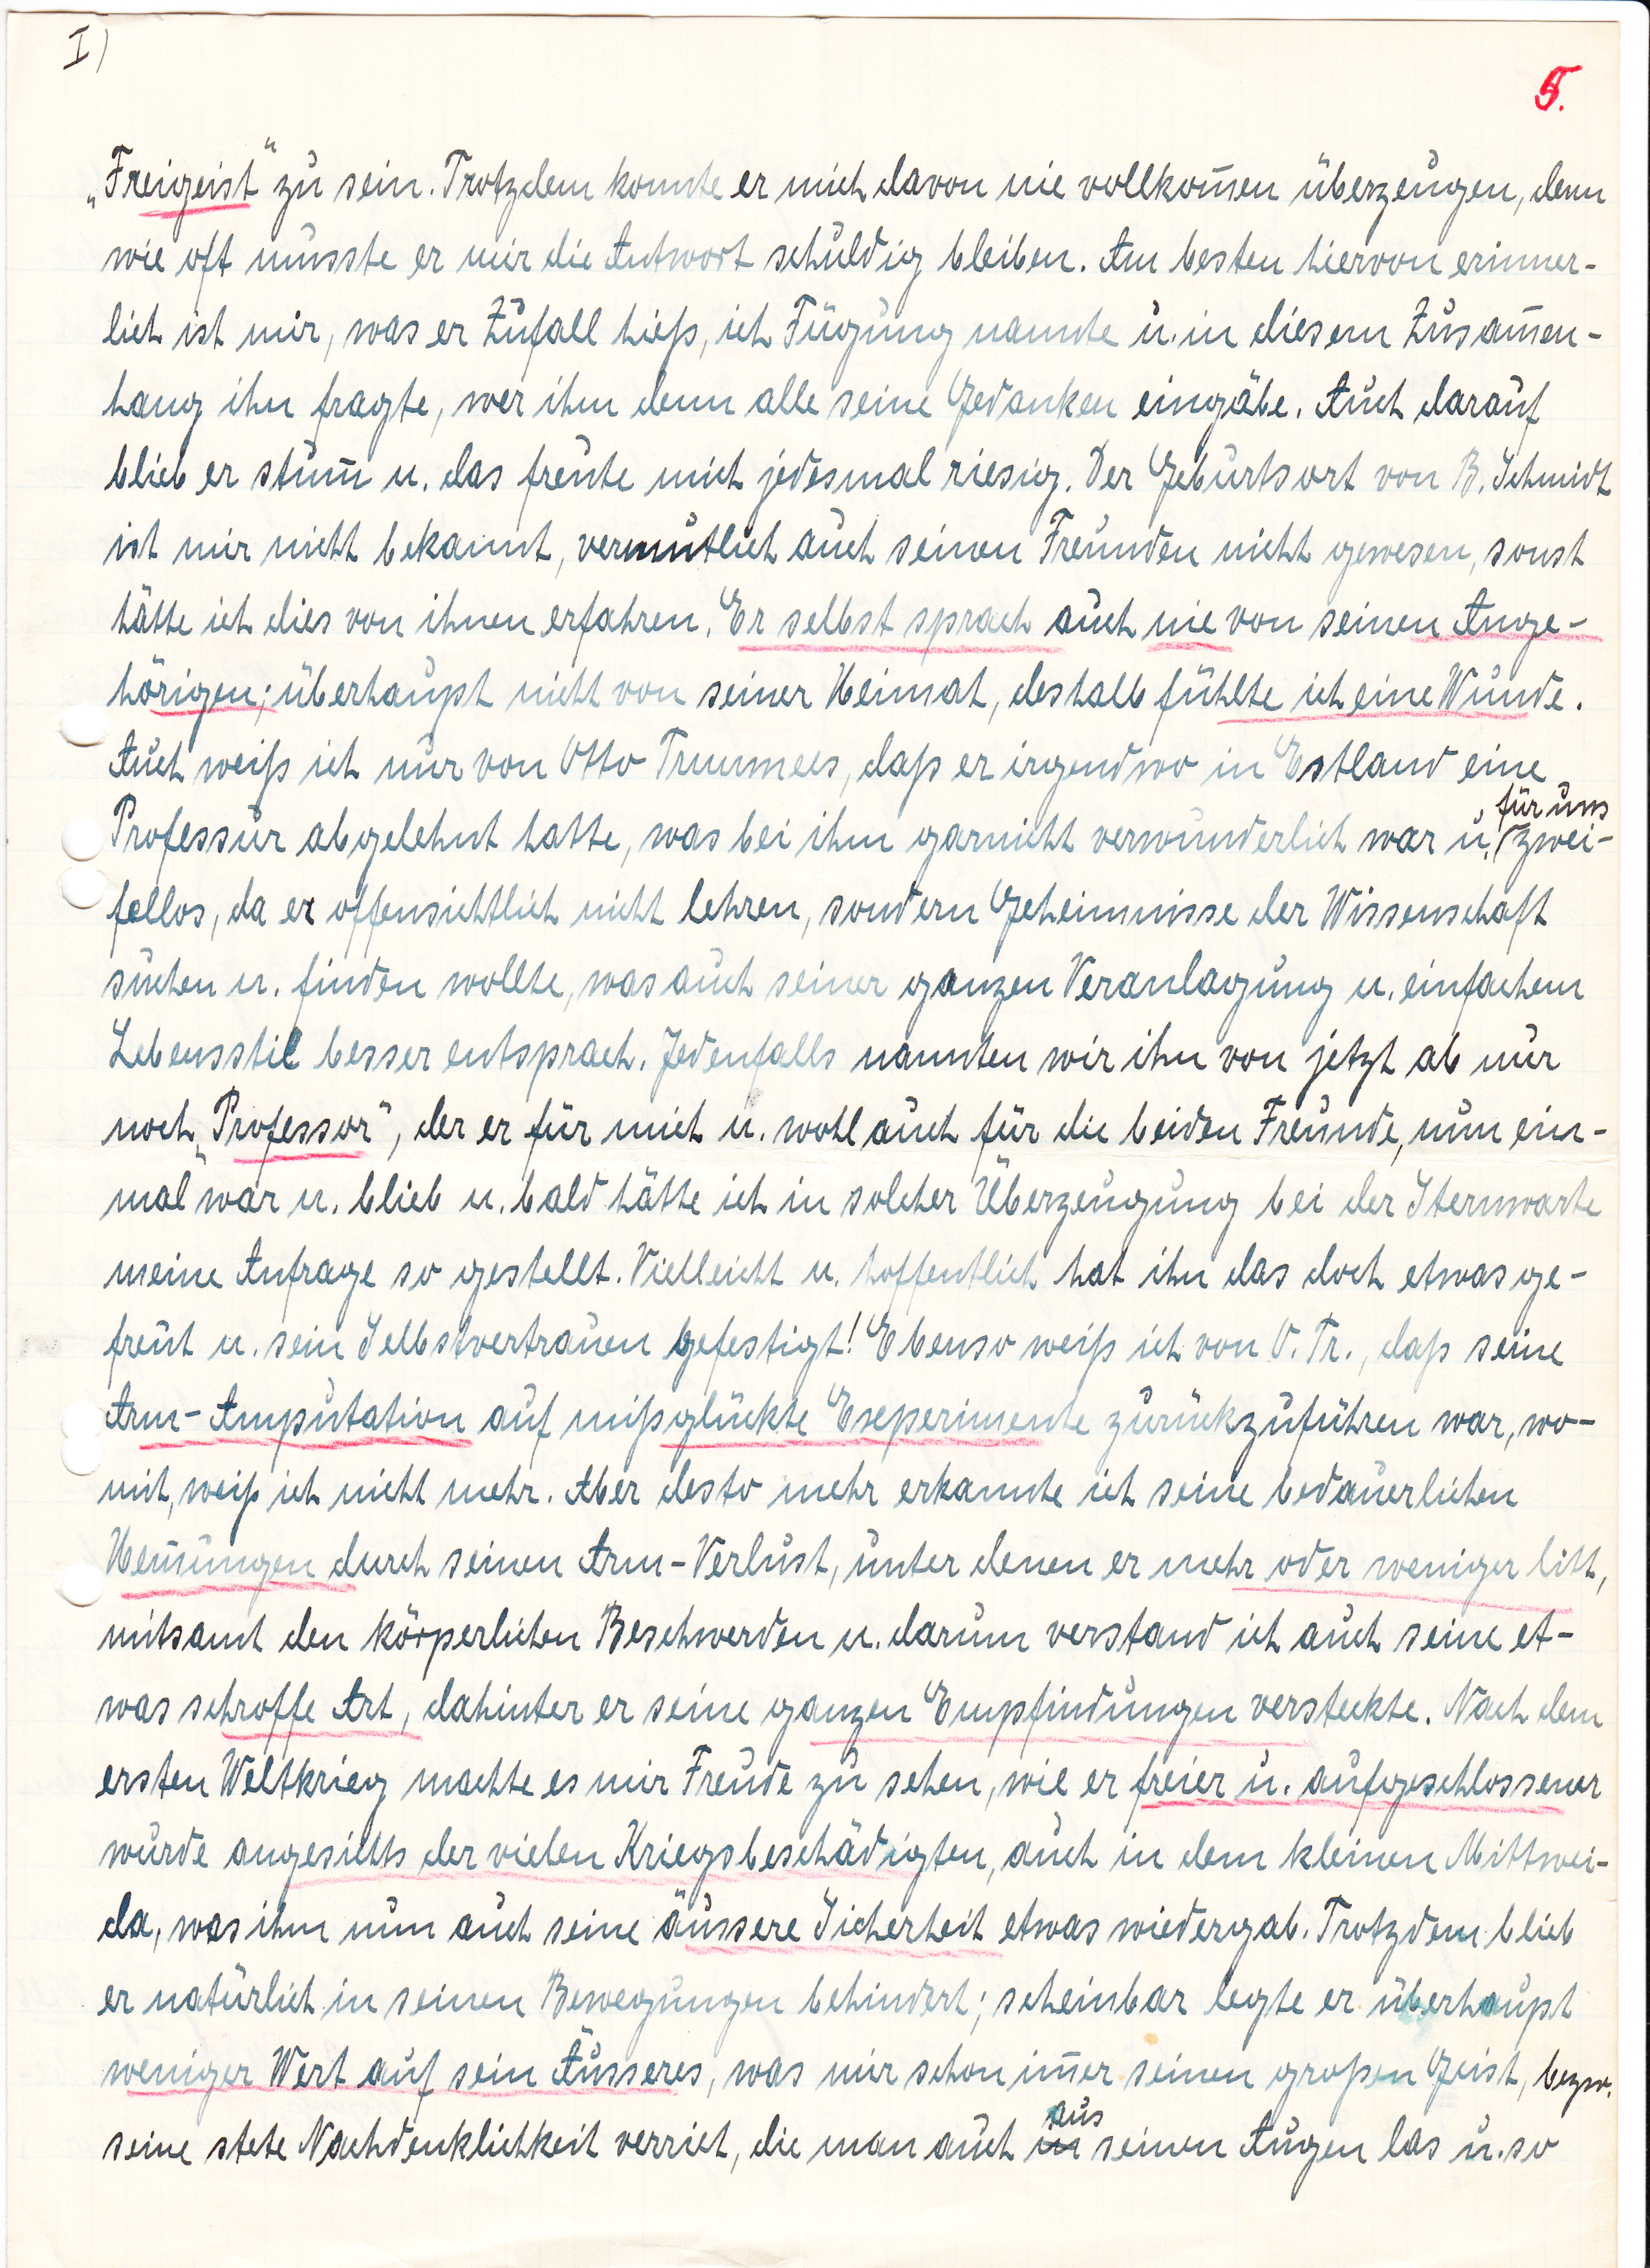 I)
5.
„Freigeist“ zu sein. Trotzdem konnte er mich davon nie vollkom̅en überzeugen, denn
wie oft musste er mir die Antwort schuldig bleiben. Am besten hiervon erinner-
lich ist mir, was er Zufall hieß, ich Fügung nannte u. in diesem Zusam̅en-
hang ihn fragte, wer ihm denn alle seine Gedanken eingäbe. Auch darauf
blieb er stum̅ u. das freute mich jedesmal riesig. Der Geburtsort von B. Schmidt
ist mir nicht bekannt, vermutlich auch seinen Freunden nicht gewesen, sonst
hätte ich dies von ihnen erfahren. Er selbst sprach auch nie von seinen Ange-
hörigen; überhaupt nicht von seiner Heimat, deshalb fühlte ich eine Wunde.
Auch weiß ich nur von Otto Trummees, daß er irgendwo in Estland eine
für uns
Professur abgelehnt hatte, was bei ihm garnicht verwunderlich war u. (zwei-
fellos, da er offensichtlich nicht lehren, sondern Geheimnisse der Wissenschaft
suchen u. finden wollte, was auch seiner ganzen Veranlagung u. einfachem
Lebensstil besser entsprach. Jedenfalls nannten wir ihn von jetzt ab nur
noch „Professor“, der er für mich u. wohl auch für die beiden Freunde, nun ein-
mal war u. blieb u. bald hätte ich in solcher Überzeugung bei der Sternwarte
meine Anfrage so gestellt. Vielleicht u. hoffentlich hat ihn das doch etwas ge-
freut u. sein Selbstvertrauen gefestigt! Ebenso weiß ich von O. Tr., daß seine
Arm-Amputation auf mißglückte Experimente zurückzuführen war, wo-
mit, weiß ich nicht mehr. Aber desto mehr erkannte ich seine bedauerlichen
Hem̅ungen durch seinen Arm-Verlust, unter denen er mehr oder weniger litt,
mitsamt den körperlichen Beschwerden u. darum verstand ich auch seine et-
was schroffe Art, dahinter er seine ganzen Empfindungen versteckte. Nach dem
ersten Weltkrieg machte es mir Freude zu sehen, wie er freier u. aufgeschlossener
wurde angesichts der vielen Kriegsbeschädigten, auch in dem kleinen Mittwei-
da, was ihm nun auch seine äussere Sicherheit etwas wiedergab. Trotzdem blieb
er natürlich in seinen Bewegungen behindert; scheinbar legte er überhaupt
weniger Wert auf sein Äusseres, was mir schon im̅er seinen großen Geist, bezw.
aus
seine stete Nachdenklichkeit verriet, die man auch in seinen Augen las u. so